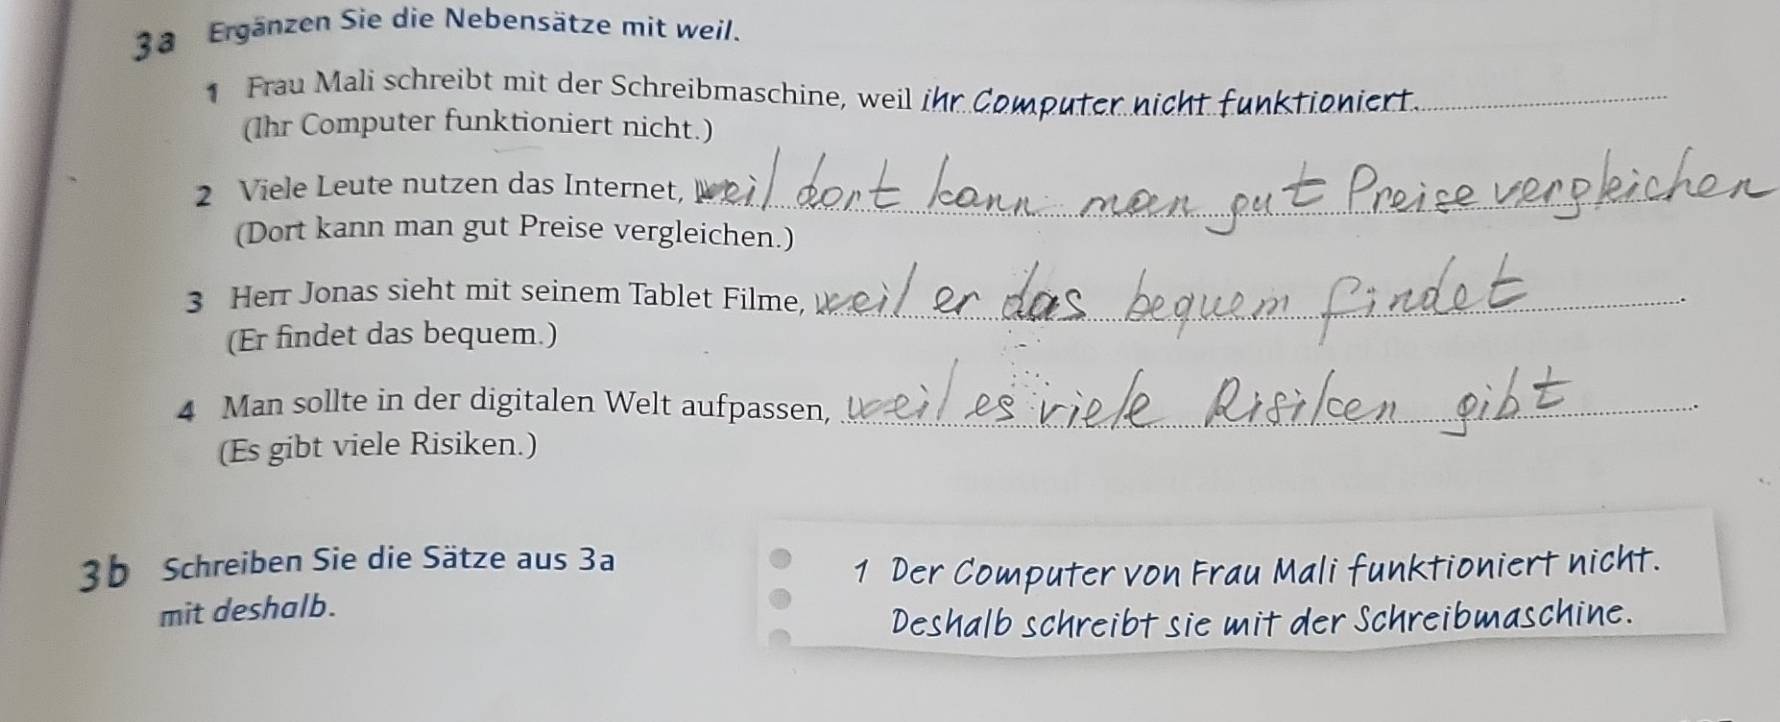 3a Ergänzen Sie die Nebensätze mit weil.
1 Frau Mali schreibt mit der Schreibmaschine, weil ihr Computer nicht funktioniert.
(Ihr Computer funktioniert nicht.)
2 Viele Leute nutzen das Internet, weil dort kann man gut Preise vergleichen
(Dort kann man gut Preise vergleichen.)
3 Herr Jonas sieht mit seinem Tablet Filme, weil er das bequem findet.
(Er findet das bequem.)
4 Man sollte in der digitalen Welt aufpassen, weil es viele Risiken gibt.
(Es gibt viele Risiken.)
3b Schreiben Sie die Sätze aus 3a
mit deshalb.
1 Der Computer von Frau Mali funktioniert nicht.
Deshalb schreibt sie mit der Schreibmaschine.